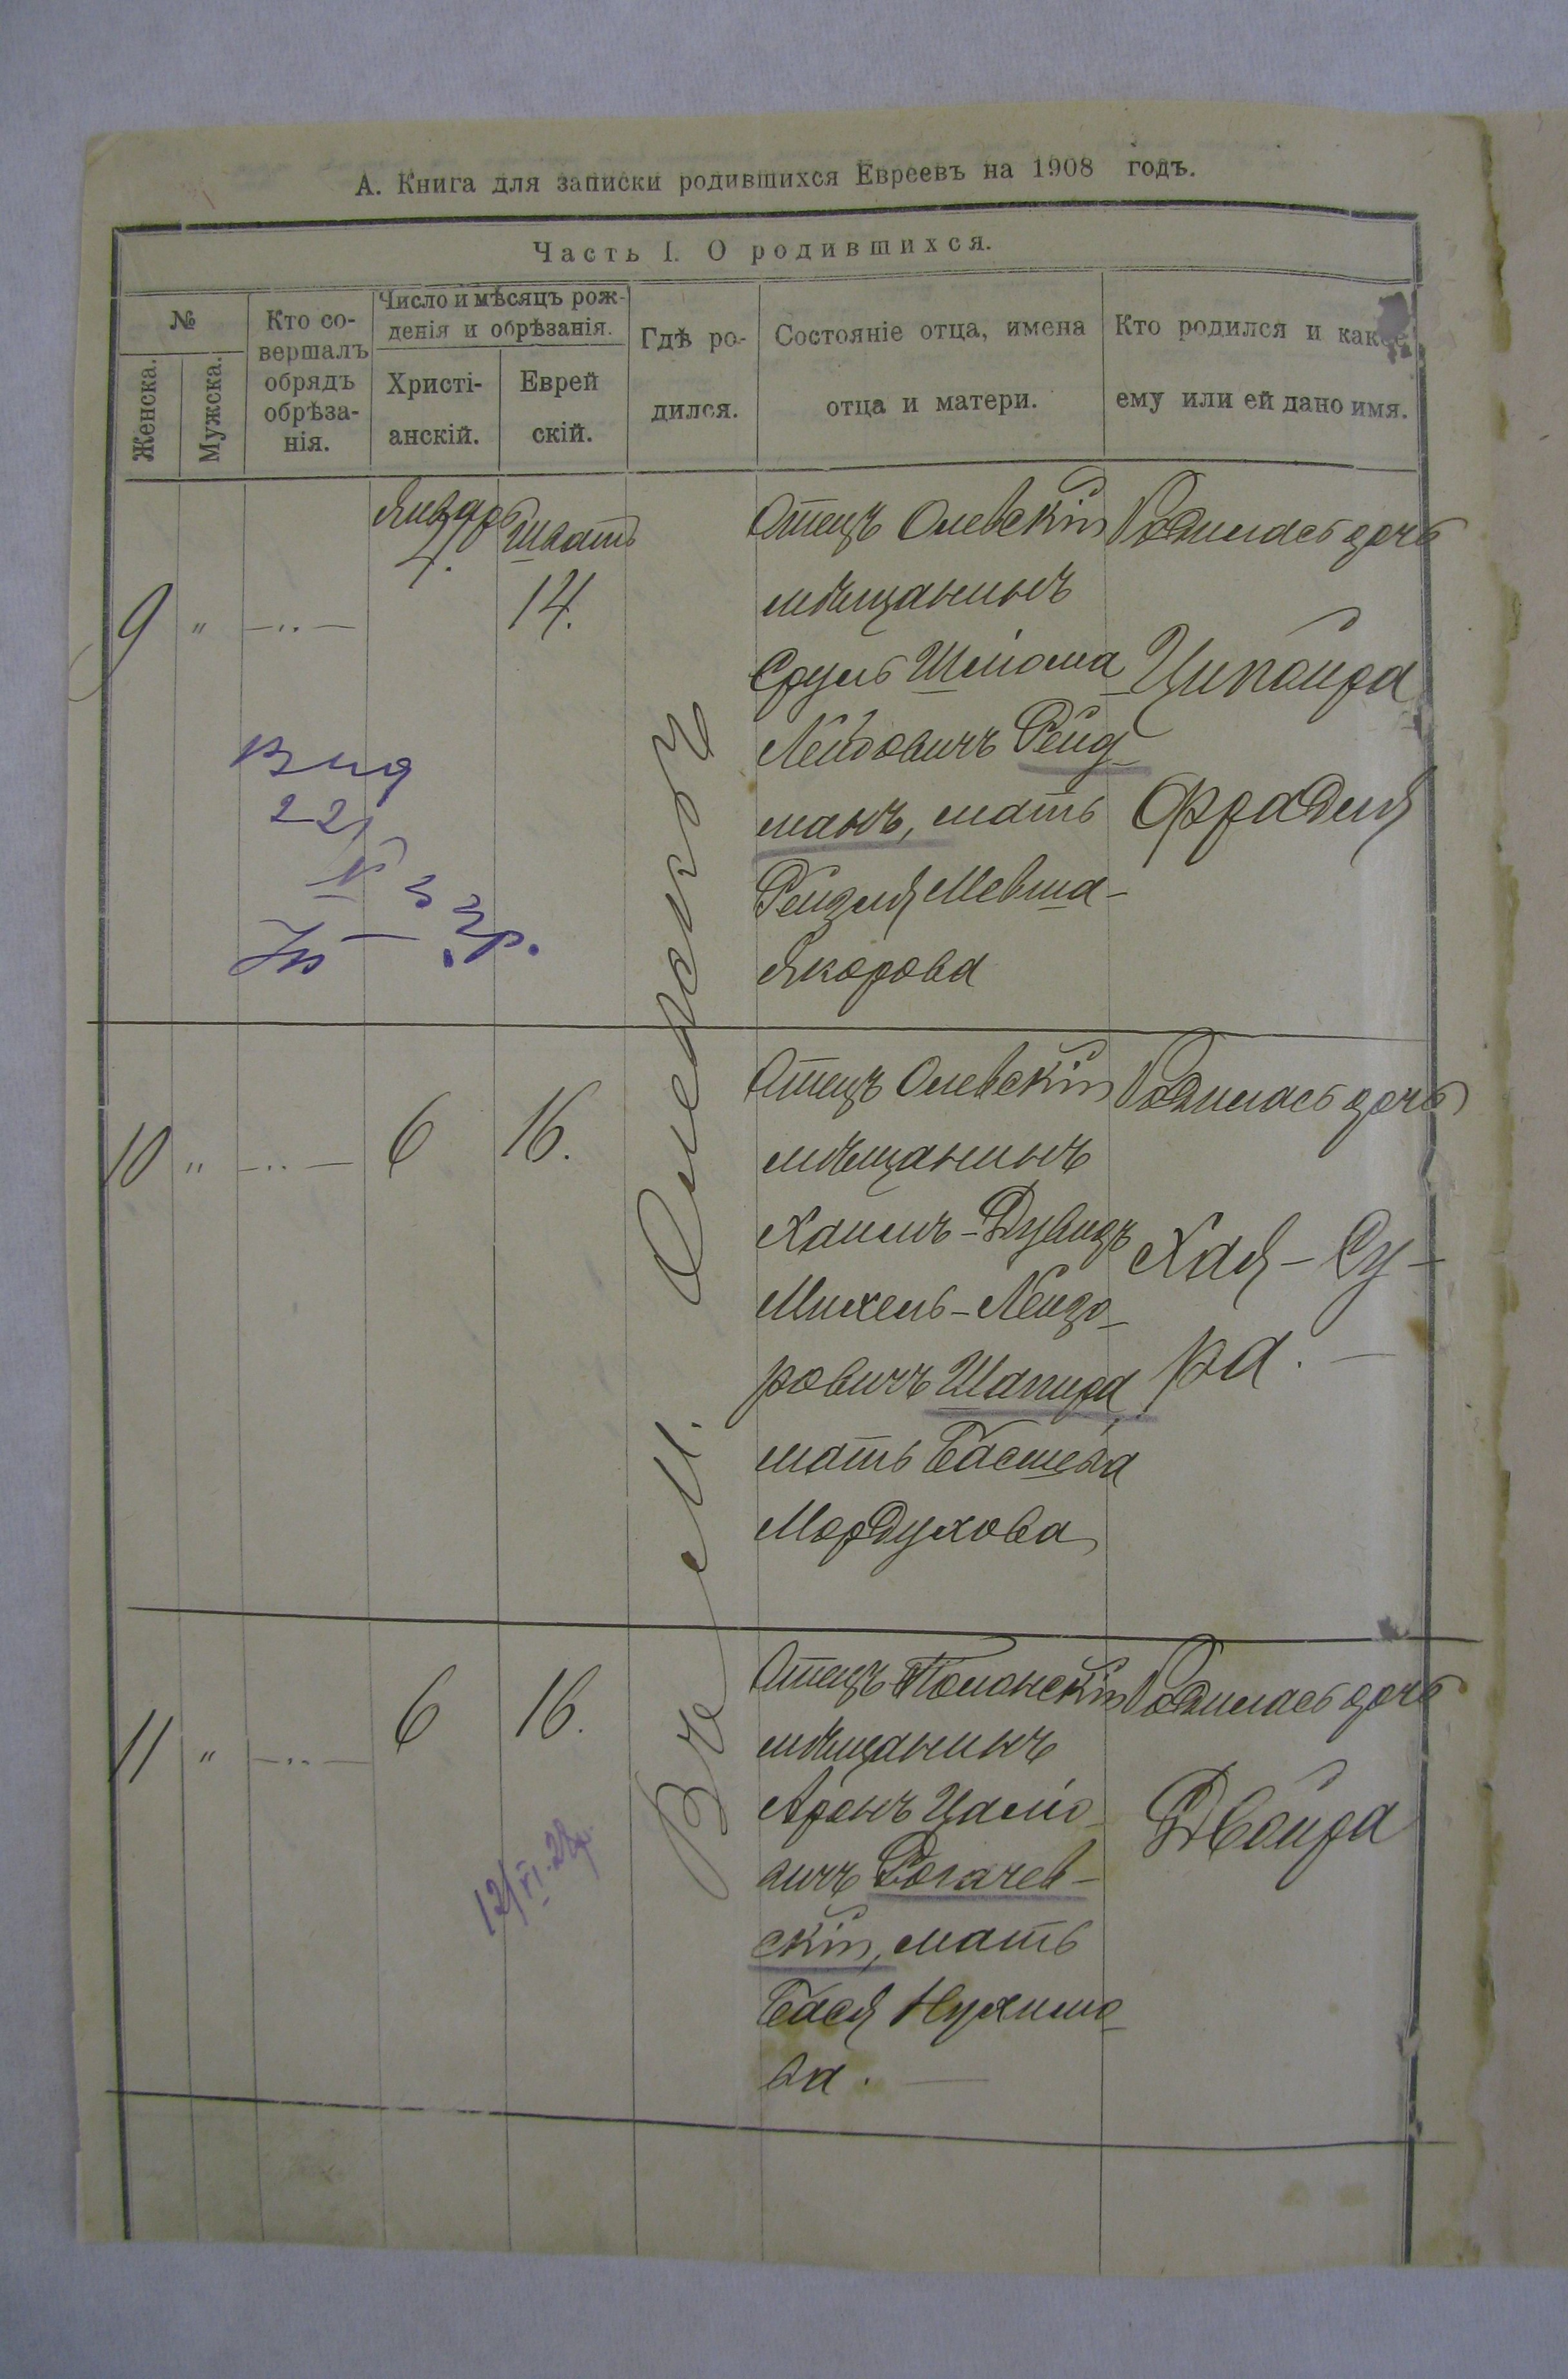 А. Книга для записки родившихся Евреевъ на 1908 годъ.
Часть I. О родившихся.
№
Женска.
Мужска.
Кто со-
вершалъ
обрядъ
обрѣза-
нія.
Число и мѣсяцъ рож-
денія и обрѣзанія.
Христі-
анскій.
Еврей
скій.
Гдѣ ро-
дился.
Состояніе отца, имена
отца и матери.
Кто родился и какое
ему или ей дано имя.
Въ м. Олевскъ
9 " —··—
Январь
4.
Шватъ
14.
Отецъ Олевскій
мѣщанинъ
Сруль Шліома
Лейбовичъ Рейд-
манъ, мать
Рейзля Мевша-
Якорова
Родилась дочь
Ципойра
Фрадля
Вид
22/
№ 3
10 " —··— 6 16.
Отецъ Олевскій
мѣщанинъ
Хаимъ-Дувидъ
Михель-Лейзо-
ровичъ Шапира,
мать Басшева
Мордухова
Родилась дочь
Хая-Су-
ра.—
11 " —··— 6 16.
12/VI.28
Отецъ Полонскій
мѣщанинъ
Аронъ Цаліо-
вичъ Рогачев-
скій, мать
Бася Нухимо-
ва.—
Родилась дочь
Двойра